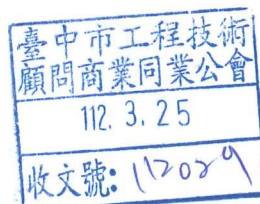 臺中市工程技術
顧問商業同業公會
112. 3. 25
收文號: 112029